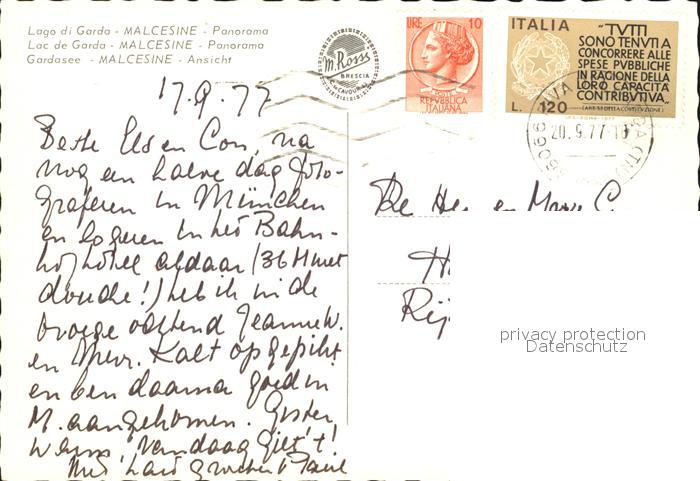 Lago di Garda - MALCESINE - Panorama
Lac de Garda - MALCESINE - Panorama
Gardasee - MALCESINE - Ansicht
M. Rossi
BRESCIA
LIRE 10
REPVBBLICA
ITALIANA
ITALIA
"TVTTI
SONO TENVTI A
CONCORRERE ALLE
SPESE PVBBLICHE
IN RAGIONE DELLA
LORO CAPACITÀ
CONTRIBVTIVA"
L. 120
20.9.77
17.9.77
Beste Els en Con, na
nog een halve dag foto-
graferen in München
en logeren in het Bahn-
hof hotel aldaar (36 M met
douche!) heb ik in de
vroege ochtend Jeannette W.
en Mevr. Kalt opgepikt
en ben daarna goed in
M. aangekomen. Gister
warm, vandaag giet 't!
Met hart. groeten Paul
De Heer en Mevr. C.
H
Rij
privacy protection
Datenschutz